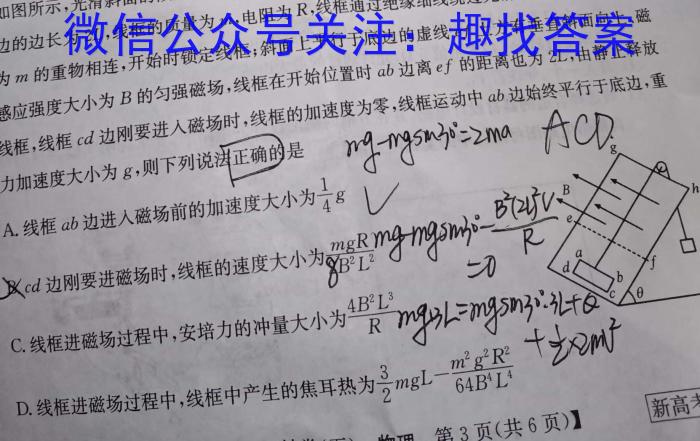 如图所示,光滑斜面的
电阻为R,线框通过绝缘细线绕过
微信公众号关注：趣找答案
边的边长
为m的重物相连,开始时锁定线框,斜面上
磁
感应强度大小为B的匀强磁场,线框在开始位置时ab边离ef的距离也为2L,由静止释放
线框,线框cd边刚要进入磁场时,线框的加速度为零,线框运动中ab边始终平行于底边,重
力加速度大小为g,则下列说法正确的是
mg-mgsin30°=2ma
ACD.
A.线框ab边进入磁场前的加速度大小为1/4 g
B.cd边刚要进磁场时,线框的速度大小为mgR/8B²L²
mg-mgsin30°-B²(2L)²V/R
=0
C.线框进磁场过程中,安培力的冲量大小为4B²L³/R
mg·3L=mgsin30°·3L+Q
+½×2mV²
D.线框进磁场过程中,线框中产生的焦耳热为3/2 mgL-m²g²R²/64B⁴L⁴
g
h
B
e
f
a
b
d
c
θ
物理 第3页(共6页)】
新高考